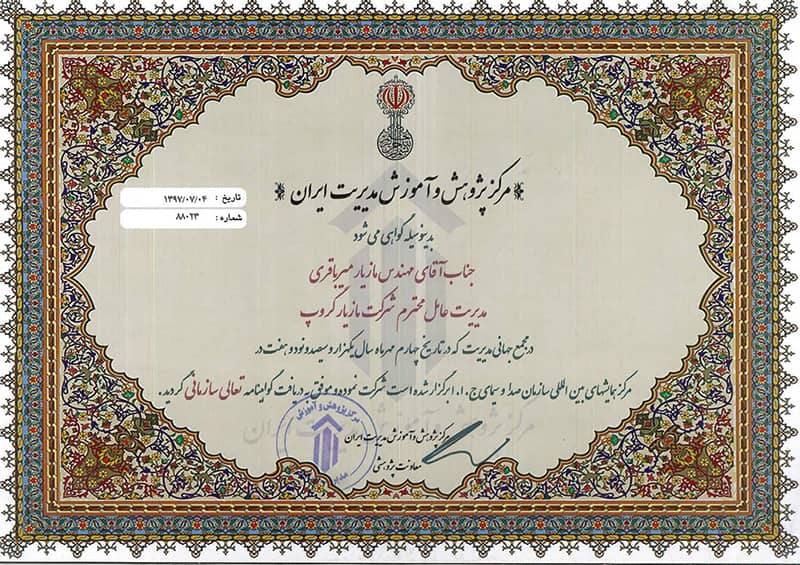 مرکز پژوهش و آموزش مدیریت ایران
تاریخ : ۱۳۹۷/۰۷/۰۴
شماره : ۸۸۰۲۳
بدینوسیله گواهی می شود
جناب آقای مهندس مازیار میرباقری
مدیریت عامل محترم شرکت مازیار گروپ
در مجمع جهانی مدیریت که در تاریخ چهارم مهر ماه سال یکهزار و سیصد و نود و هفت در
مرکز همایشهای بین المللی سازمان صدا و سمای ج . ا . ا برگزار شده است شرکت نموده و موفق به دریافت گواینامه تعالی سازمانی گردید.
مرکز پژوهش و آموزش مدیریت ایران
معاونت پژوهشی
مرکز پژوهش و آموزش
مرکز پژوهش و آموزش مدیریت ایران